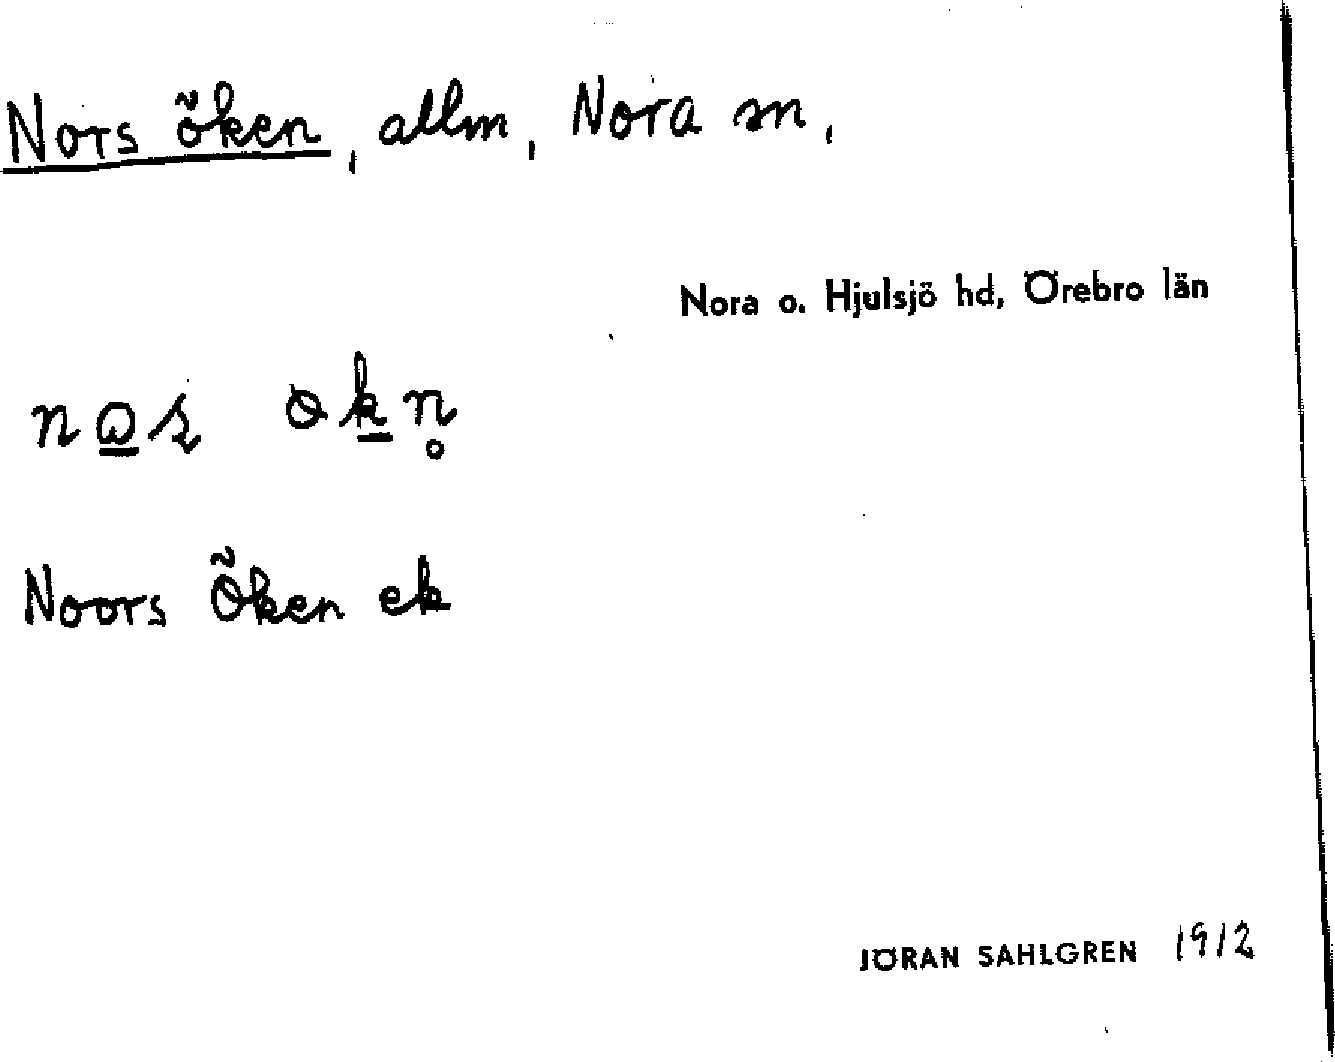 Nors öken, allm, Nora sn,
Nora o. Hjulsjö hd, Örebro län
Noors Öken ek
JÖRAN SAHLGREN 1912